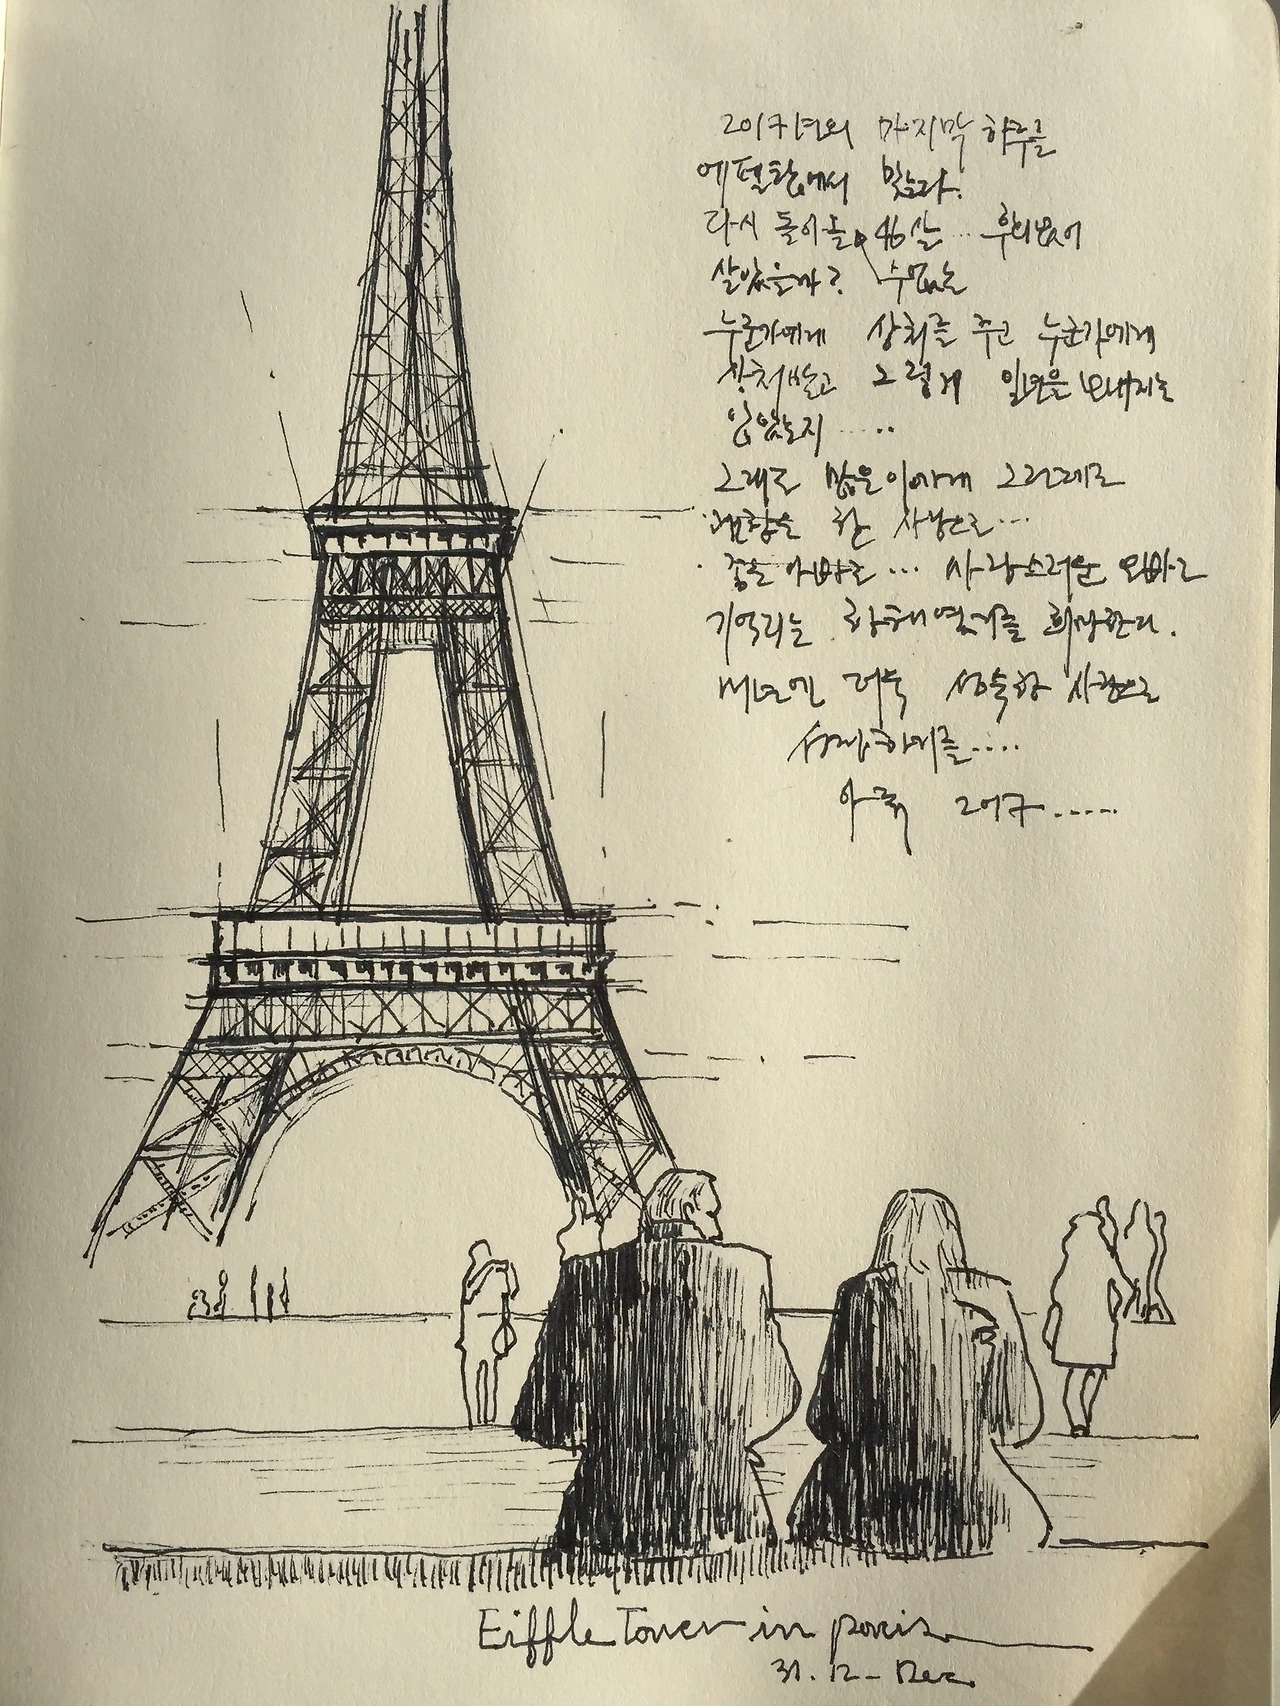 2017년의 마지막 하루를
에펠탑에서 맞는다.
다시 돌이놀 46살... 후회없이
살았을까? 수많은
누군가에게 상처를 주고 누군가에게
상처받고 그렇게 일년을 보내지는
않았는지.....
그래도 많은이에게 그런데로
괜찮은 한 사람으로...
좋은 아빠로... 사랑스러운 오빠로
기억되는 한해였기를 희망한다.
더욱 성숙한 사람으로
성장하기를....
아듀 2017.....
Eiffle Tower in paris
31. 12 - Dec.